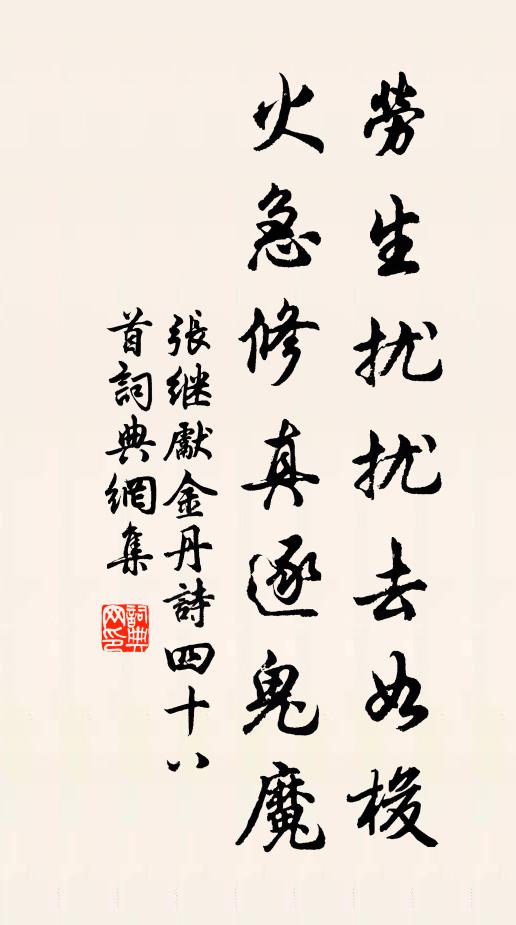 勞生扰扰去如梭
火急修真逐鬼魔
張继獻金丹詩四十八
首詞典網集
詞典網印